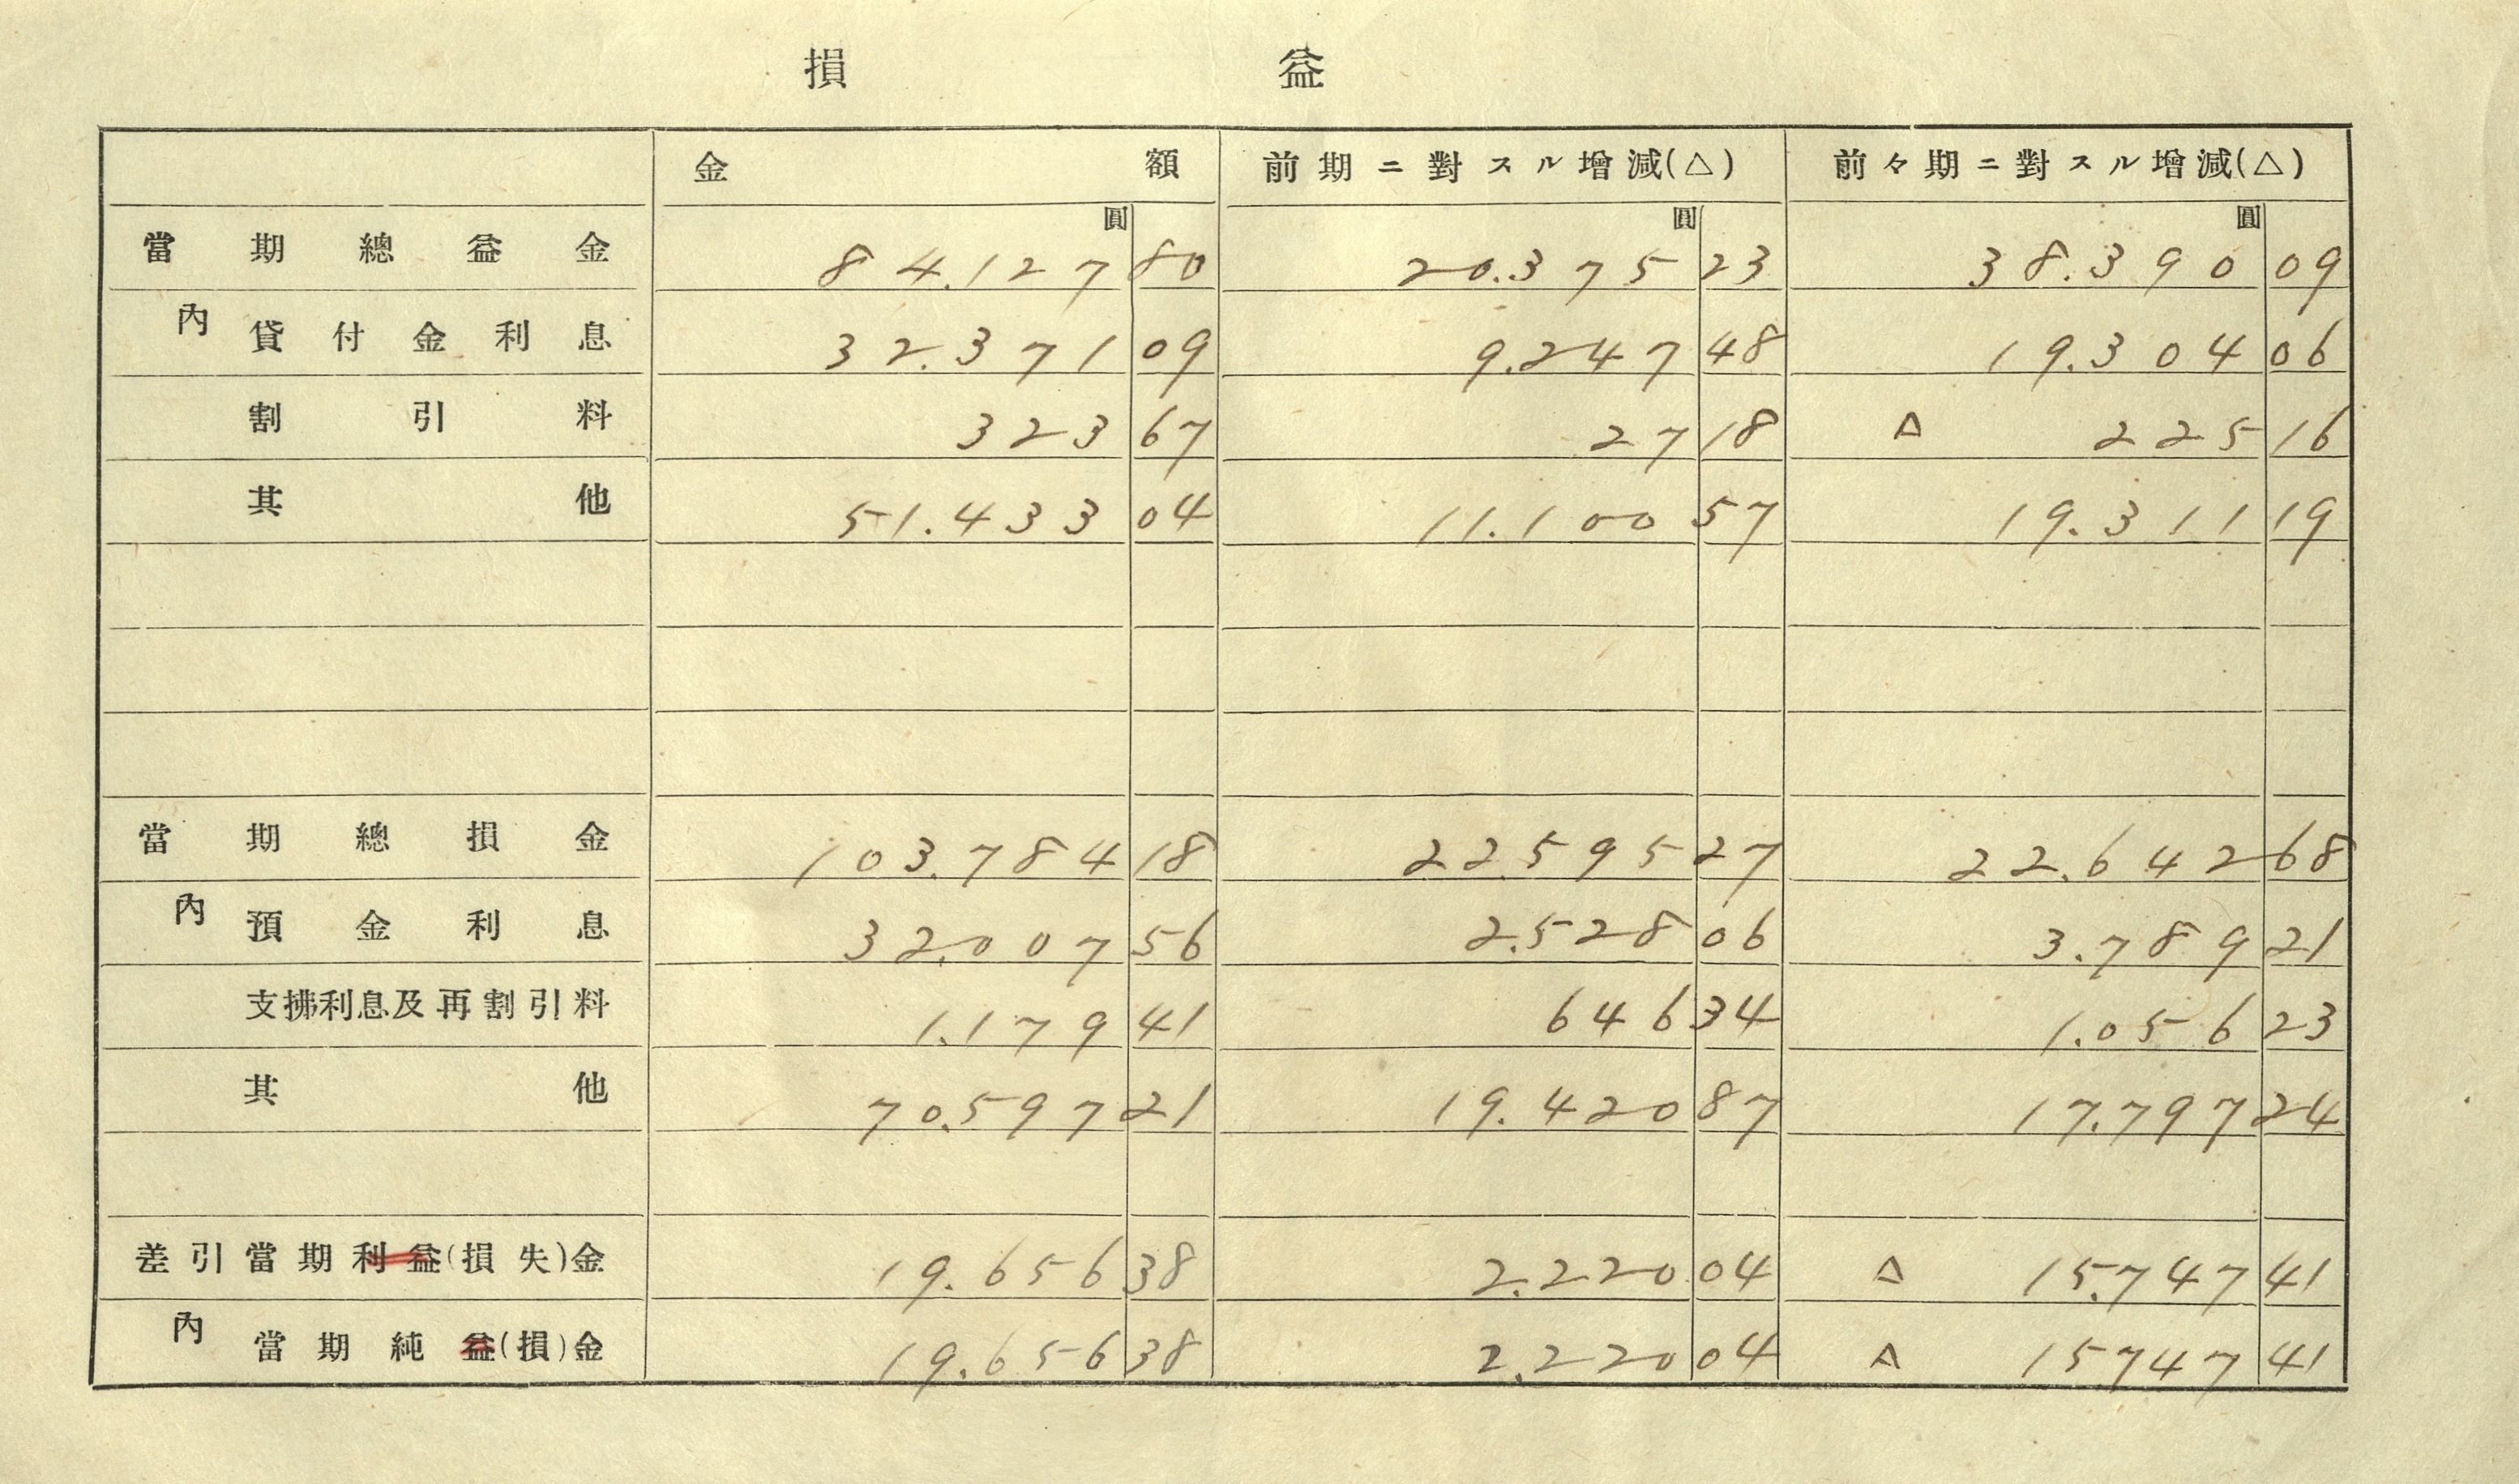 損益
金額 前期ニ對スル增減(△) 前々期ニ對スル增減(△)
圓 圓 圓
當期總益金 84.127 80 20.375 23 38.390 09
內 貸付金利息 32.371 09 9.247 48 19.304 06
割引料 323 67 27 18 △ 225 16
其他 51.433 04 11.100 57 19.311 19
當期總損金 103.784 18 22.595 27 22.642 68
內 預金利息 32.007 56 2.528 06 3.789 21
支拂利息及再割引料 1.179 41 646 34 1.056 23
其他 70.597 21 19.420 87 17.797 24
差引當期利益(損失)金 19.656 38 2.220 04 △ 15.747 41
內 當期純益(損)金 19.656 38 2.220 04 △ 15.747 41